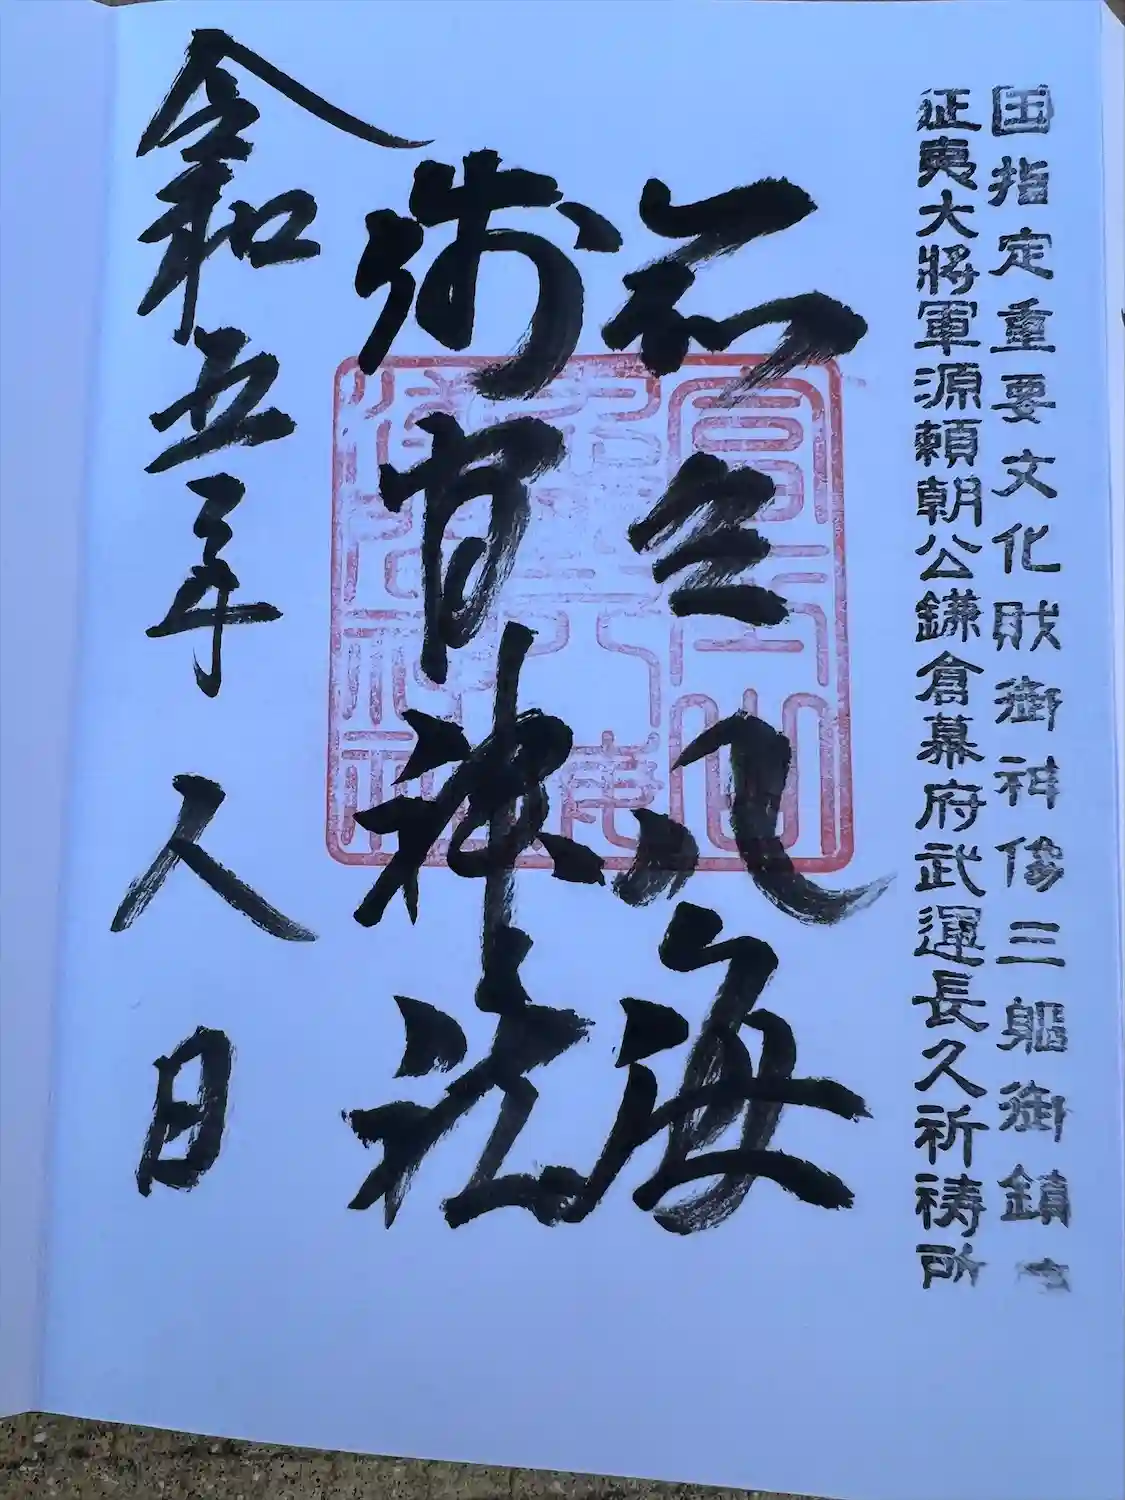 国指定重要文化財御神像三躯御鎮
征夷大將軍源頼朝公鎌倉幕府武運長久祈祷所
八海
浅間神社
令和五年人日
富士山